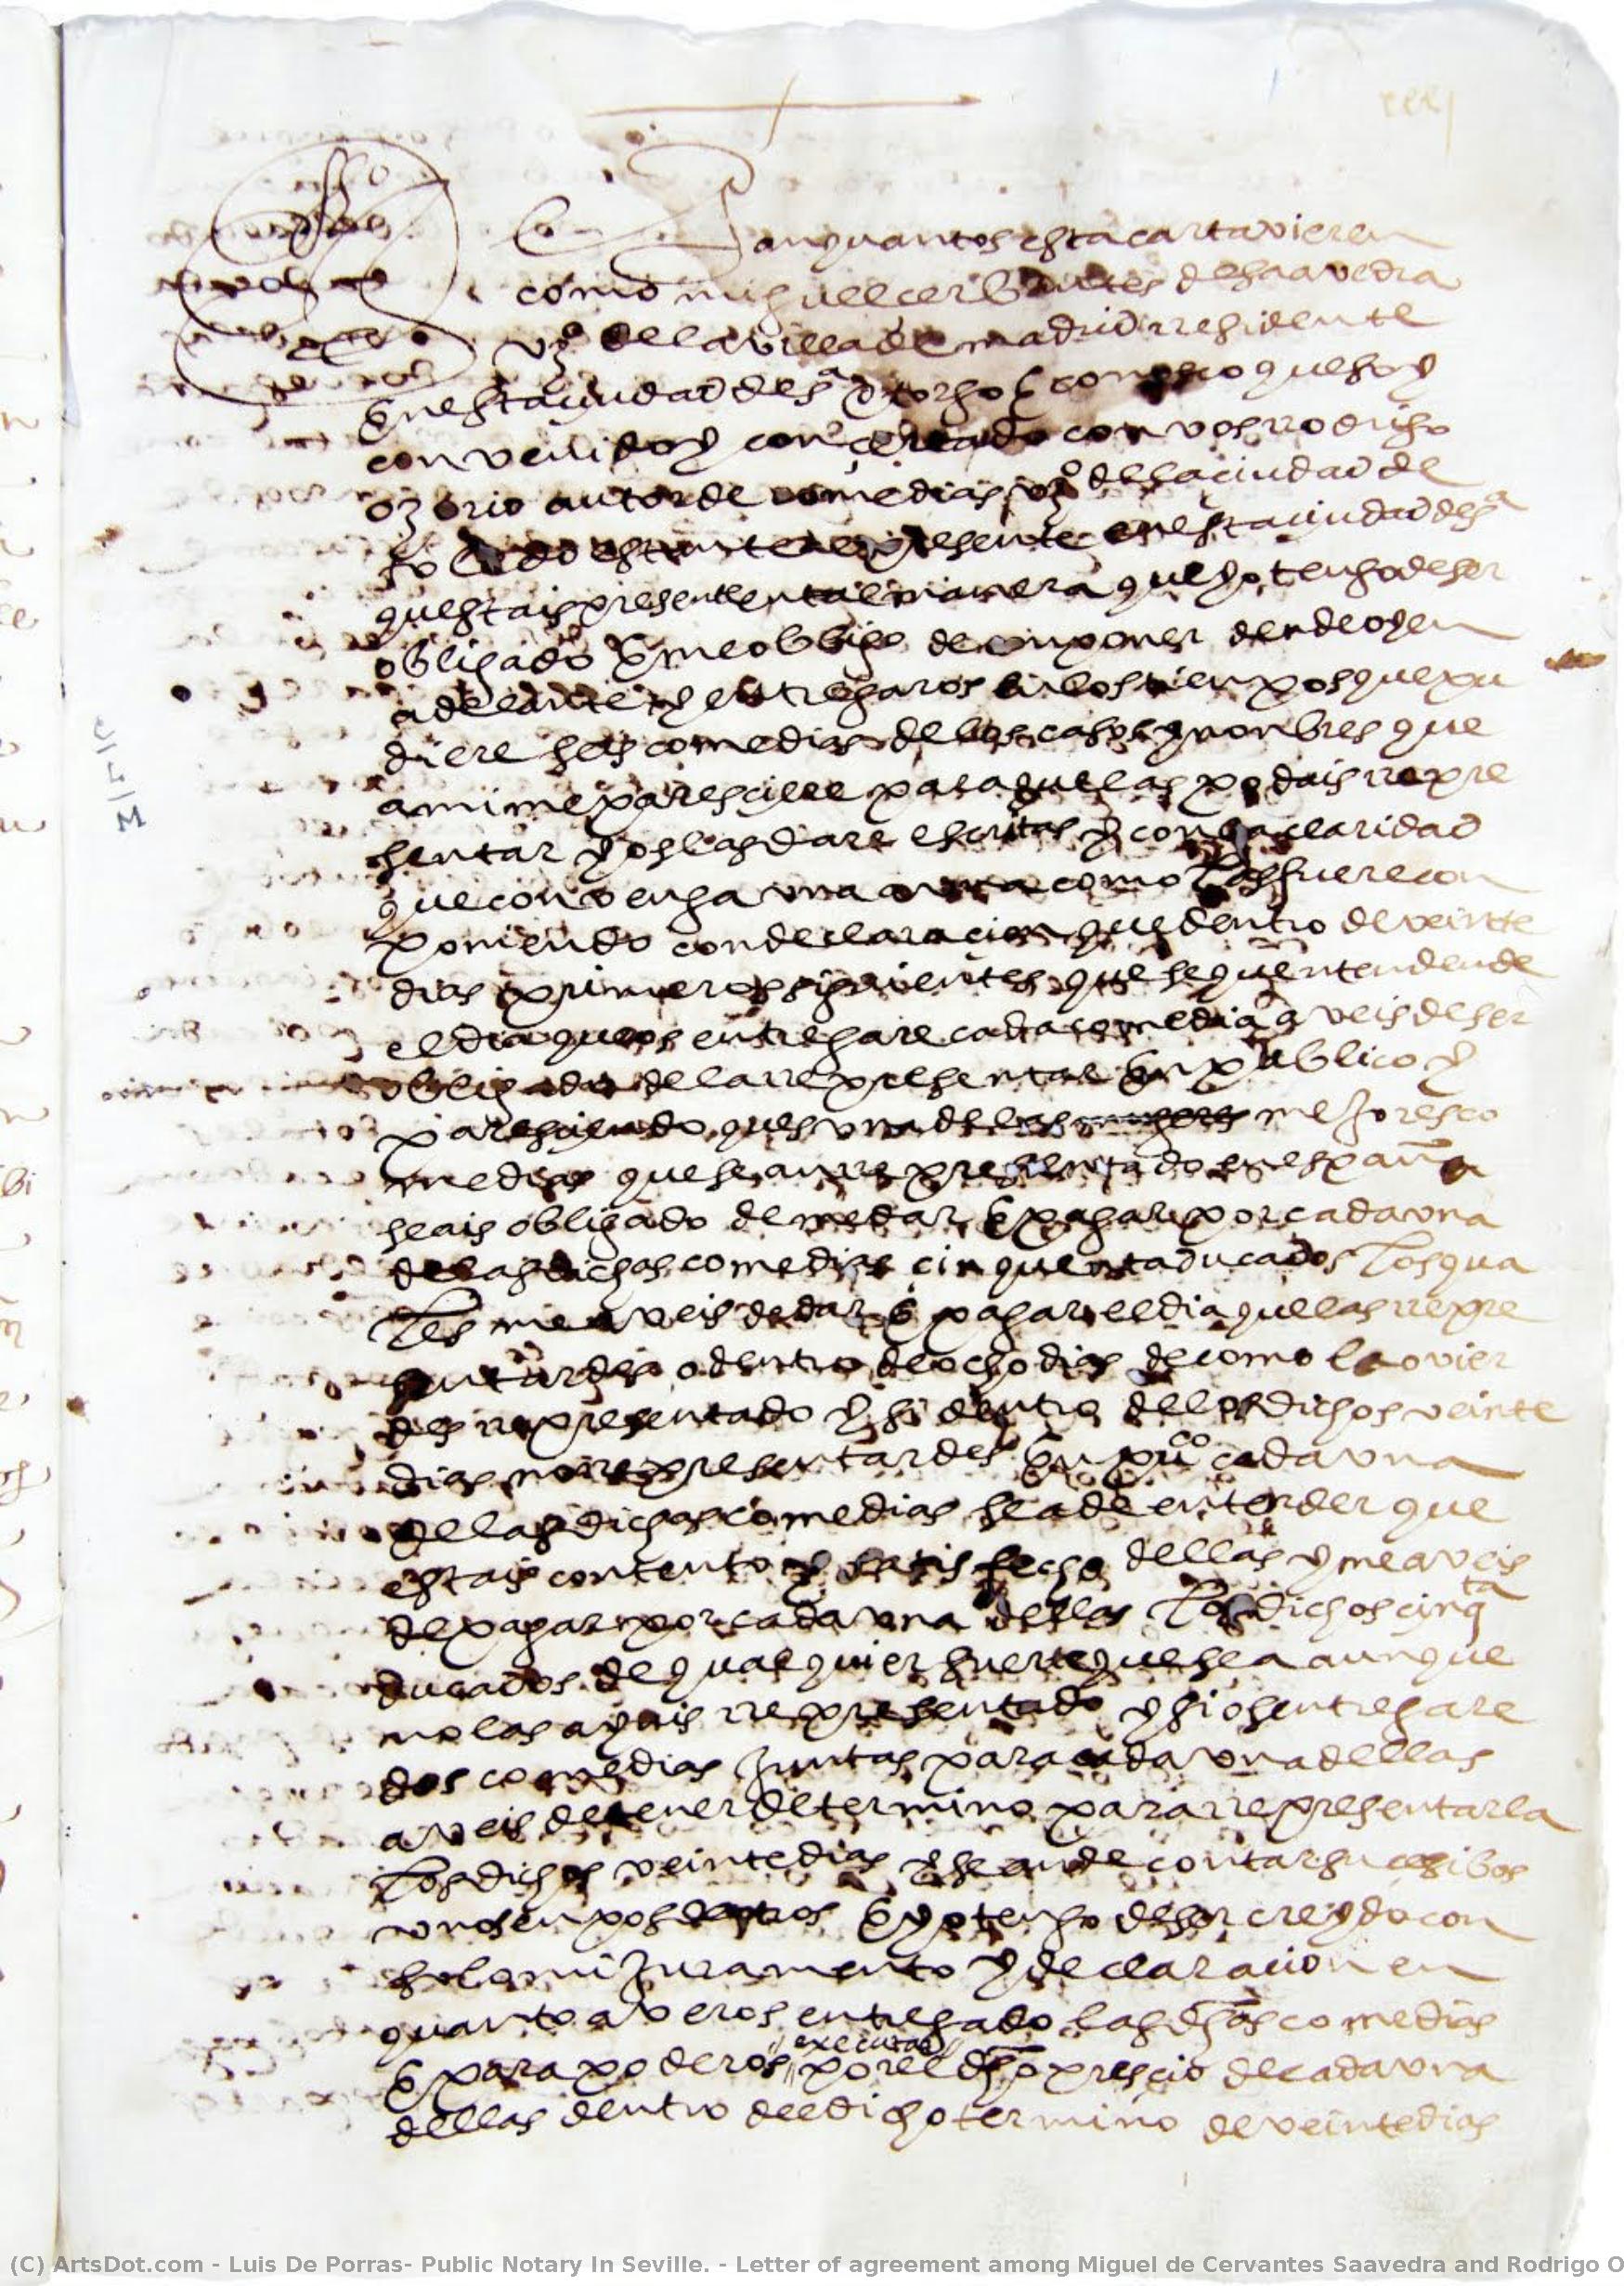 Sean quantos esta carta vieren
como miguel cerbantes de saavedra
vzº de la villa de madrid rresidente
en esta ciudad de sª otorgo e conosco que soy
convenido y concertado con vos rrodrigo
ozorio autor de comedias vzº de la ciudad de
toledo estante al presente en esta ciudad de sª
questais presente en tal manera que yo tengo de ser
obligado e me obligo de conponer dende oy en
adelante y entregaros en los tienpos que pu
diere seis comedias de los casos y nonbres que
a mi me paresciere para que las podais rrepre
sentar y os las dare escritas y con la claridad
que convenga una a una como las fuere con
poniendo con declaracion que dentro de veinte
dias primeros siguientes que se quenten dende
el dia que os entregare cada comedia aveis de ser
obligado de la rrepresentar en publico y
paresciendo ques una de las mejores co
medias que se an rrepresentado en españa
seais obligado de me dar e pagar por cada una
de las dichas comedias cinquenta ducados los qua
les me aveis de dar e pagar el dia que las rrepre
sentardes o dentro de ocho dias de como la ovier
des rrepresentado y si dentro de los dichos veinte
dias no rrepresentardes en puco cada una
de las dichas comedias se a de entender que
estais contento y satisfecho dellas y me aveis
de pagar por cada una dellas los dichos cinqta
ducados de qualquier suerte que sea aunque
no las ayais rrepresentado y si os entregare
dos comedias juntas para cada una dellas
aveis de tener de termino para rrepresentarla
los dichos veinte dias y se an de contar sucesibos
unos en pos de otros e yo tengo de ser creydo con
solo mi juramento y declaracion en
quanto a averos entregado las dhas comedias
e para poderos executar por el dho prescio de cada una
dellas dentro del dicho termino de veinte dias
(C) ArtsDot.com - Luis De Porras- Public Notary In Seville. - Letter of agreement among Miguel de Cervantes Saavedra and Rodrigo O